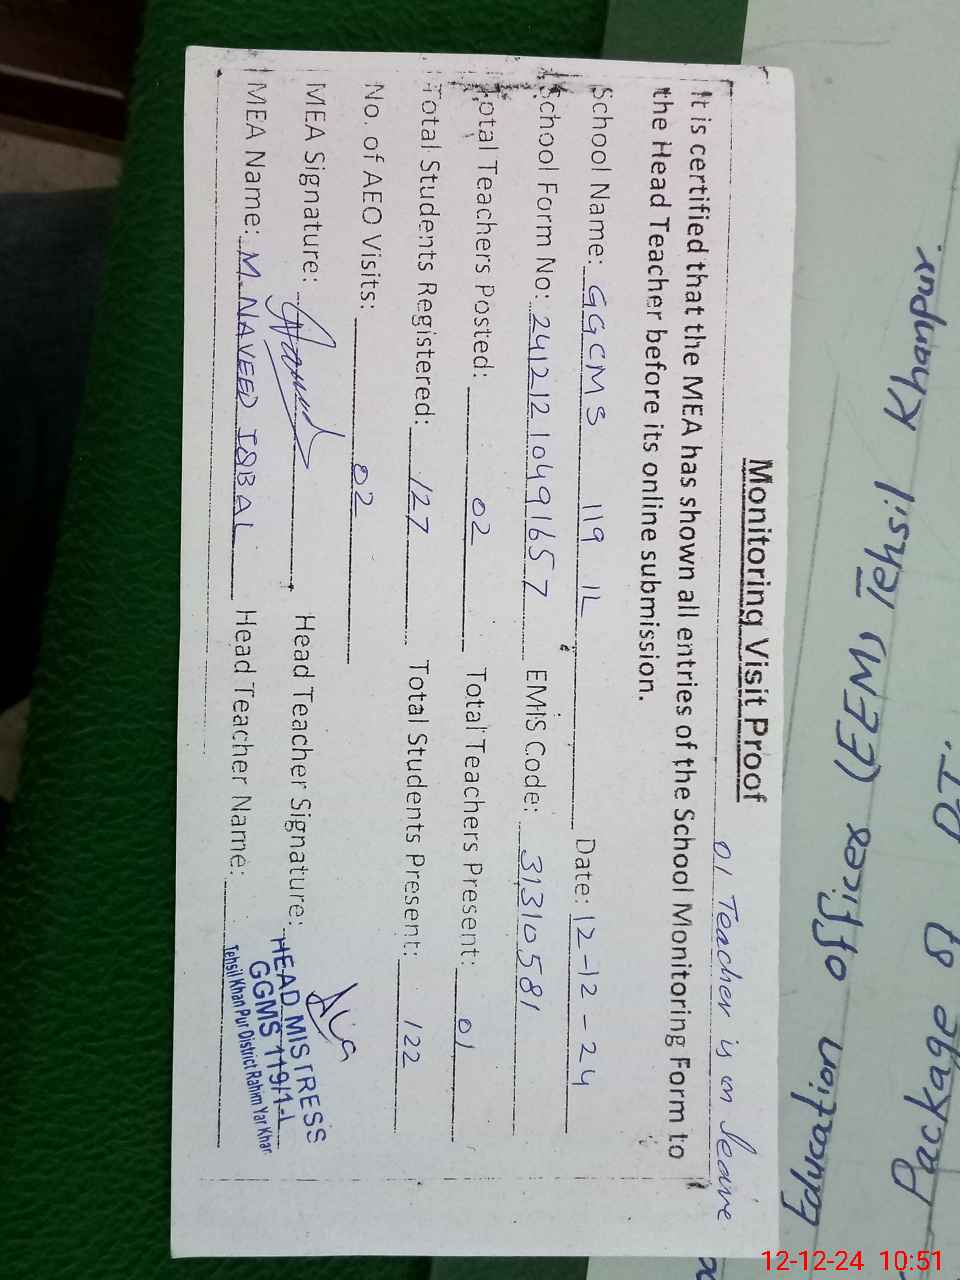 Monitoring Visit Proof
01 Teacher is on leave
It is certified that the MEA has shown all entries of the School Monitoring Form to
the Head Teacher before its online submission.
School Name: GGCMS 119 1L Date: 12-12-24
School Form No: 24121210491657 EMIS Code: 31310581
Total Teachers Posted: 02 Total Teachers Present: 01
Total Students Registered: 127 Total Students Present: 122
No. of AEO Visits: 02
MEA Signature: Head Teacher Signature:
MEA Name: M. NAVEED IQBAL Head Teacher Name:
HEAD MISTRESS
GGMS 119/1-L
Tehsil Khan Pur District Rahim Yar Khan
Education officer (EEMW) Tehsil Khanpur
Package 8
12-12-24 10:51